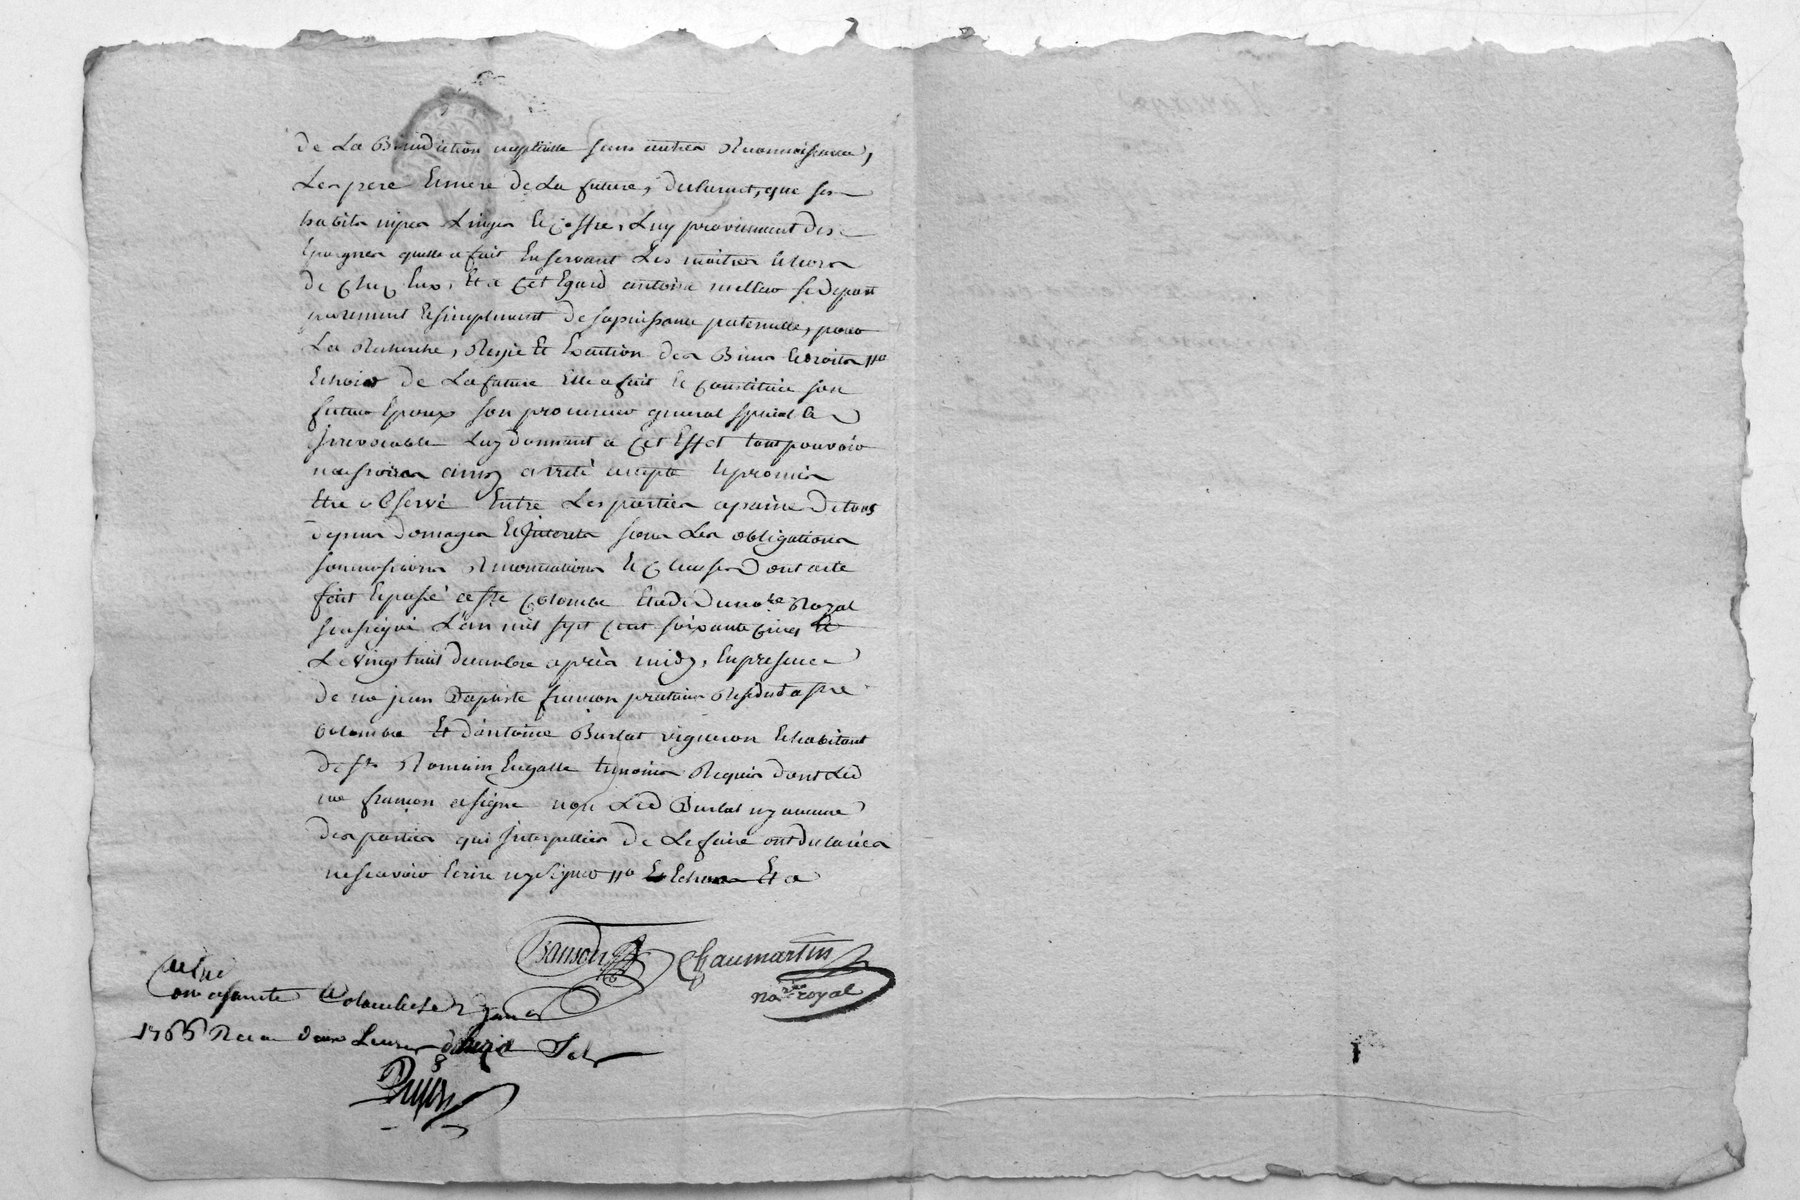 de La Bénédiction nuptialle sans autres Reconnoissance,
Les pere Et mere de La future, declarant, que ses
habits nipes Linges Et Coffre, Luy proviennent des
Epargnes quelle a fait En servant Les maitres Et hors
de Chez Eux, Et a Cet Egard antoine mellier se depart
purement Et simplement de sa puissance paternelle, pour
La Recherche, Regie Et Exaction des Biens Et droits
Echoir de La future Elle a fait Et Constitué son
futur Epoux son procureur general special Et
Irrevocable Luy donnant a Cet Effet tout pouvoir
necessaires ainsy arreté accepté Et promis
Etre observé Entre Les parties a paine de tous
depens domages Et Interets sous Les obligations
soumissions Renonciations Et Clauses dont acte
fait Et passé a Ste Colombe Etude du no.re Royal
soussigné L'an mil sept Cent soixante Cinq Le
Le vingt huit decembre après midy, En presence
de me jean Baptiste franson praticien Resident a Ste
Colombe Et d'antoine Burlat vigneron Et habitant
de St Romain En galle temoins Requis dont Led
me franson a signé non Led Burlat ny aucune
des parties qui Interpellées de Le faire ont declarées
ne scavoir Ecrire ny signer
Franson Chaumartin
no.re royal
Con.lé a Sainte Colombe Le 7 Janer
1766 Recu deux Livres Sols